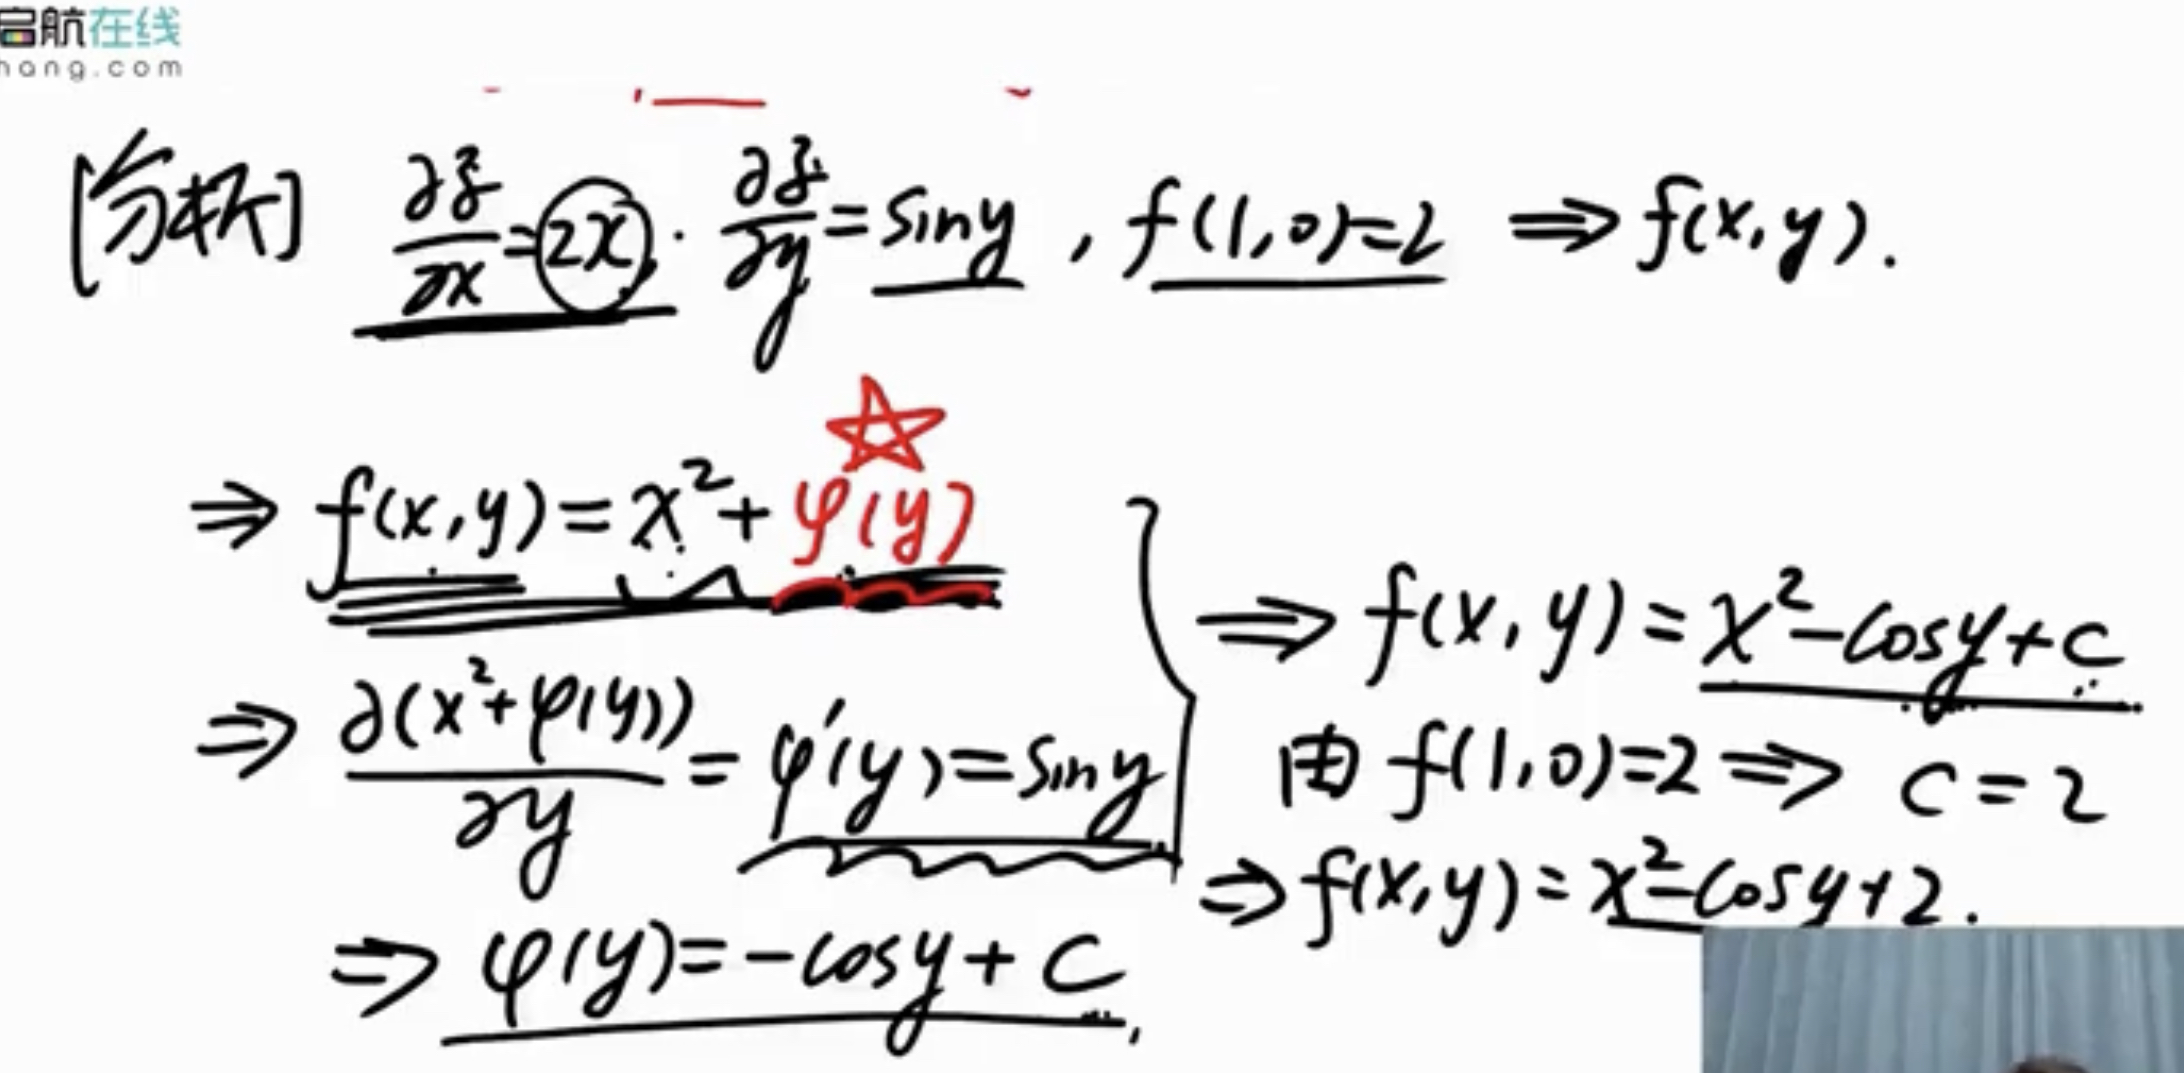 启航在线
hang.com
[分析] ∂z/∂x = 2x, ∂z/∂y = siny, f(1,0)=2 ⇒ f(x,y).
⇒ f(x,y) = x²+φ(y)
⇒ ∂(x²+φ(y))/∂y = φ'(y) = siny
⇒ φ(y) = -cosy + C.
⇒ f(x,y) = x²-cosy+C
由 f(1,0)=2 ⇒ C=2
⇒ f(x,y) = x²-cosy+2.